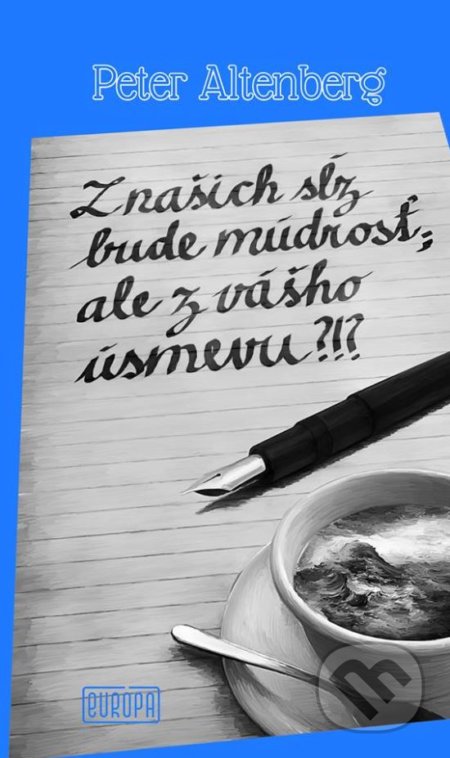 Peter Altenberg
Z našich sĺz
bude múdrosť;
ale z vášho
úsmevu?!?
EUROPA
m